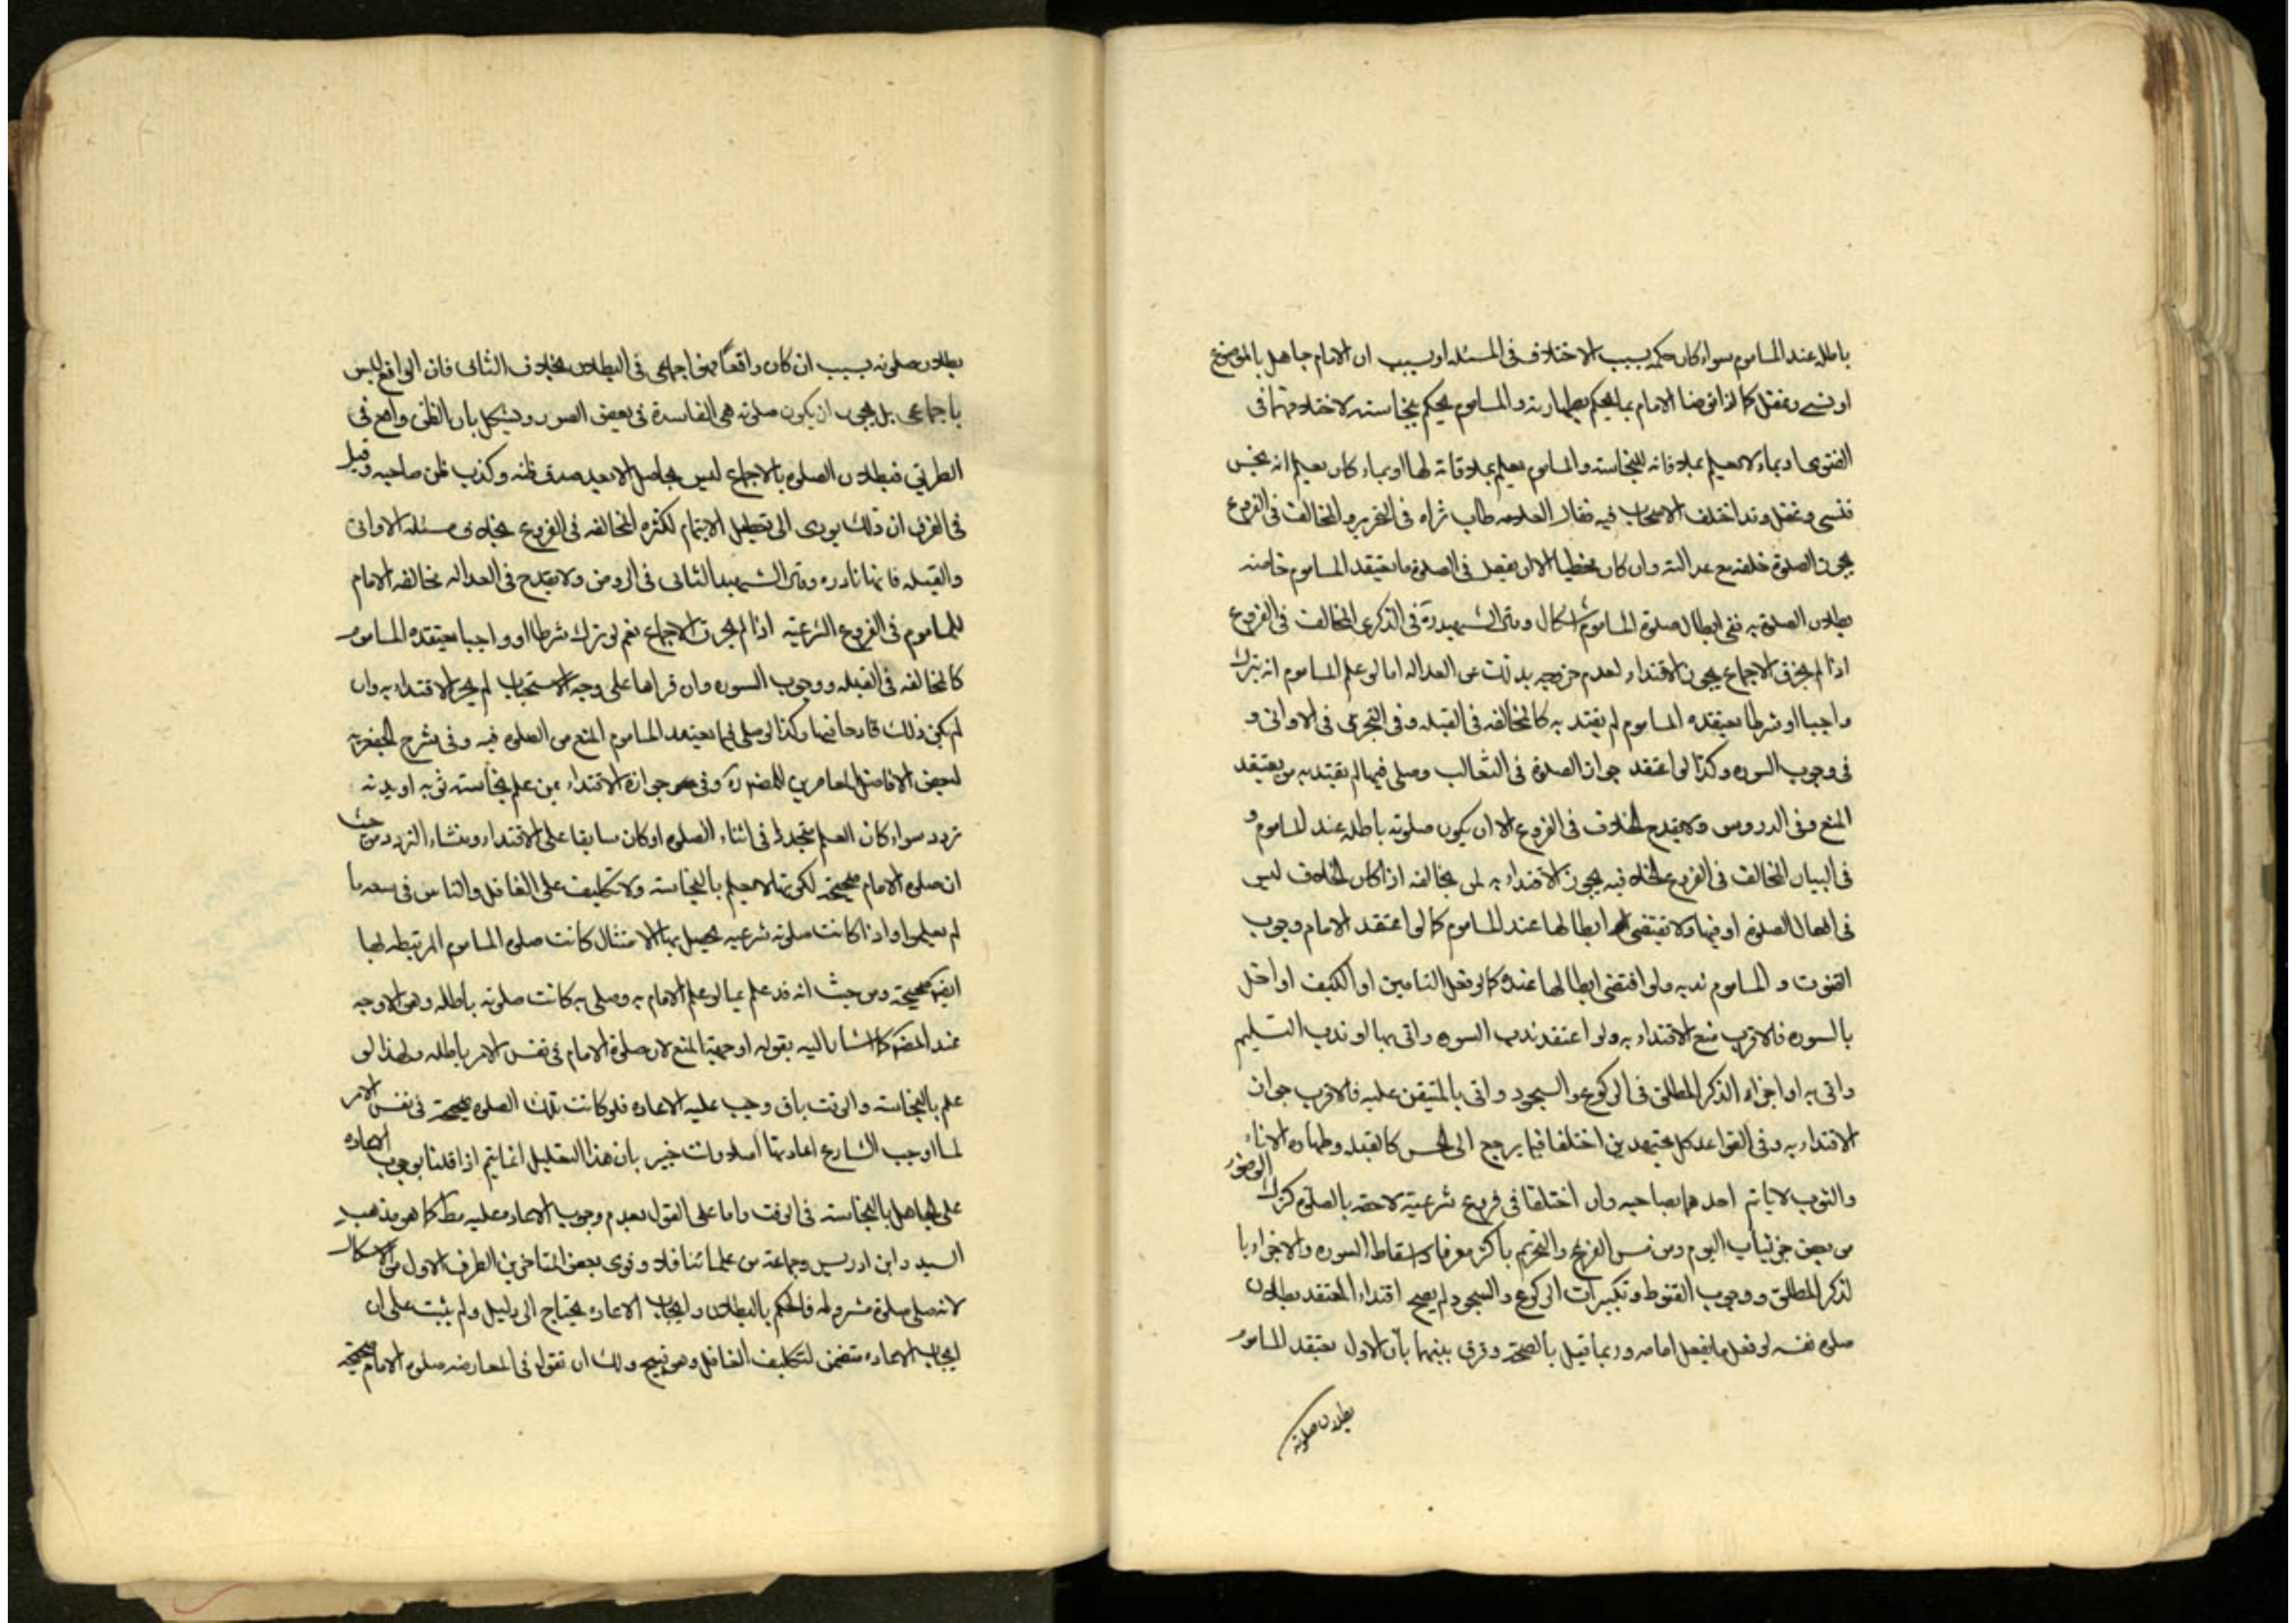 باطله عند الماموم سواء كان حكمه بسبب الاختلاف فى المسئله او بسبب ان الامام جاهل بالموضوع
او نسى وغفل كما اذا توضا الامام بما يحكم بطهارته والماموم يحكم بنجاسته لاختلافهما فى
الفتوى او بماء لا يعلم بملاقاته للنجاسته والماموم يعلم بملاقاته لها او بماء كان يعلم انه نجس
فنسى وغفل وقد اختلف الاصحاب فيه فقال العلامه طاب ثراه فى التحرير والمخالف فى الفروع
يجوز الصلوة خلفه مع عدالته وان كان مخطيا الا ان يفعل فى الصلوة ما يعتقد الماموم خاصه
بطلان الصلوة به ففى ابطال صلوة الماموم اشكال وقال الشهيد ره فى الذكرى المخالف فى الفروع
اذا لم يخرق الاجماع يجوز الاقتداء لعدم خروجه بذلك عن العداله اما لو علم الماموم انه يترك
واجبا او شرطا يعتقده الماموم لم يقتد به كالمخالفه فى القبله وفى التحرى فى الاوانى و
فى وجوب السوره وكذا لو اعتقد جواز الصلوة فى الثعالب وصلى فيها لم يقتد به من يعتقد
المنع وفى الدروس ولا يقدح الخلاف فى الفروع الا ان يكون صلوته باطله عند الماموم و
فى البيان المخالف فى الفروع الخلافيه يجوز الاقتداء به لمن يخالفه اذا كان الخلاف ليس
فى افعال الصلوة او فيها ولا تقتضى ابطالها عند الماموم كما لو اعتقد الامام وجوب
القنوت و الماموم ندبه ولو اقتضى ابطالها عنده كما لو فعل التامين او الكتف او اخل
بالسوره فالاقرب منع الاقتداء به ولو اعتقد ندب السوره واتى بها او ندب التسليم
واتى به او اجزاء الذكر المطلق فى الركوع والسجود واتى بالمتيقن عليه فالاقرب جواز
الاقتداء به وفى القواعد كل مجتهدين اختلفا فيما يرجع الى الحس كالقبله وطهاره الاناء
والثوب لا ياتم احدهما بصاحبه وان اختلفا فى فروع شرعية لاحقه بالصلوة كترك الوضوء
من بعض جزئيات النوم ومن مس الفرج والتحريم باكثر معرفا واسقاط السوره والاجزاء با
لذكر المطلق ووجوب القنوط وتكبيرات الركوع والسجود لم يصح اقتداء المعتقد بطلان
صلوة نفسه لو فعل ما يفعل امامه وربما قيل بالصحة وفرق بينهما بان الاول يعتقد الماموم
بطلان صلوته
بطلان صلوته بسبب ان كان واقعا فهو اجماعى فى البطلان بخلاف الثانى فان الواقع ليس
باجماعى بل يجوز ان يكون صلوته هى الفاسدة فى بعض الصور ويشكل بان الظن واقع فى
الطريق فبطلان الصلوة بالاجماع ليس بحاصل الا بعد صدق ظنه وكذب ظن صاحبه وقيل
فى الفرق ان ذلك يودى الى تعطيل الايتمام لكثره المخالفه فى الفروع بخلاف مسئله الاوانى
والقبله فانها نادره وقال الشهيد الثانى فى الروض ولا يقدح فى العداله مخالفه الامام
للماموم فى الفروع الشرعيه اذا لم يخرق الاجماع نعم لو ترك شرطا او واجبا يعتقده الماموم
كالمخالفه فى القبله ووجوب السوره وان قراها على وجه الاستحباب لم يجز الاقتداء به وان
لم يكن ذلك قادحا فيها وكذا لو صلى فيما يعتقد الماموم المنع من الصلوة فيه وفى شرح الجعفريه
لبعض الافاضل المعاصرين للمصنف ره وفى جوازه الاقتداء بمن علم بنجاسته ثوبه او بدنه
تردد سواء كان العلم متجددا فى اثناء الصلوة او كان سابقا على الاقتداء ومنشاء التردد من حيث
ان صلوة الامام صحيحة لكونها لا يعلم بالنجاسته ولا تكليف على الغافل والناس فى سعه ما
لم يعلموا واذا كانت صلوته شرعيه يحصل بها الامتثال كانت صلوة الماموم المرتبطه بها
ايضا صحيحة ومن حيث انه قد علم بما لو علم الامام به وصلى به كانت صلوته باطله وهو الاوجه
عند المصنف كما اشار اليه بقوله اوجهها المنع لان صلوة الامام فى نفس الامر باطله ولهذا لو
علم بالنجاسته والوقت باق وجب عليه الاعاده فلو كانت تلك الصلوة صحيحة فى نفس الامر
لما اوجب الشارع اعادتها اصلا وانت خبير بان هذا التعليل انما يتم اذا قلنا بوجوب الاعاده
على الجاهل بالنجاسته فى الوقت واما على القول بعدم وجوب الاعاده عليه مط كما هو مذهب
السيد وابن ادريس وجماعة من علمائنا فلا وقوى بعض المتاخرين الطرف الاول من الاشكال
لانه صلى صلوة مشروعه فالحكم بالبطلان وايجاب الاعاده يحتاج الى دليل ولم يثبت على ان
ايجاب الاعاده متضمن لتكليف الغافل وهو قبيح ولك ان تقول فى المعارضه صلوة الامام صحيحة